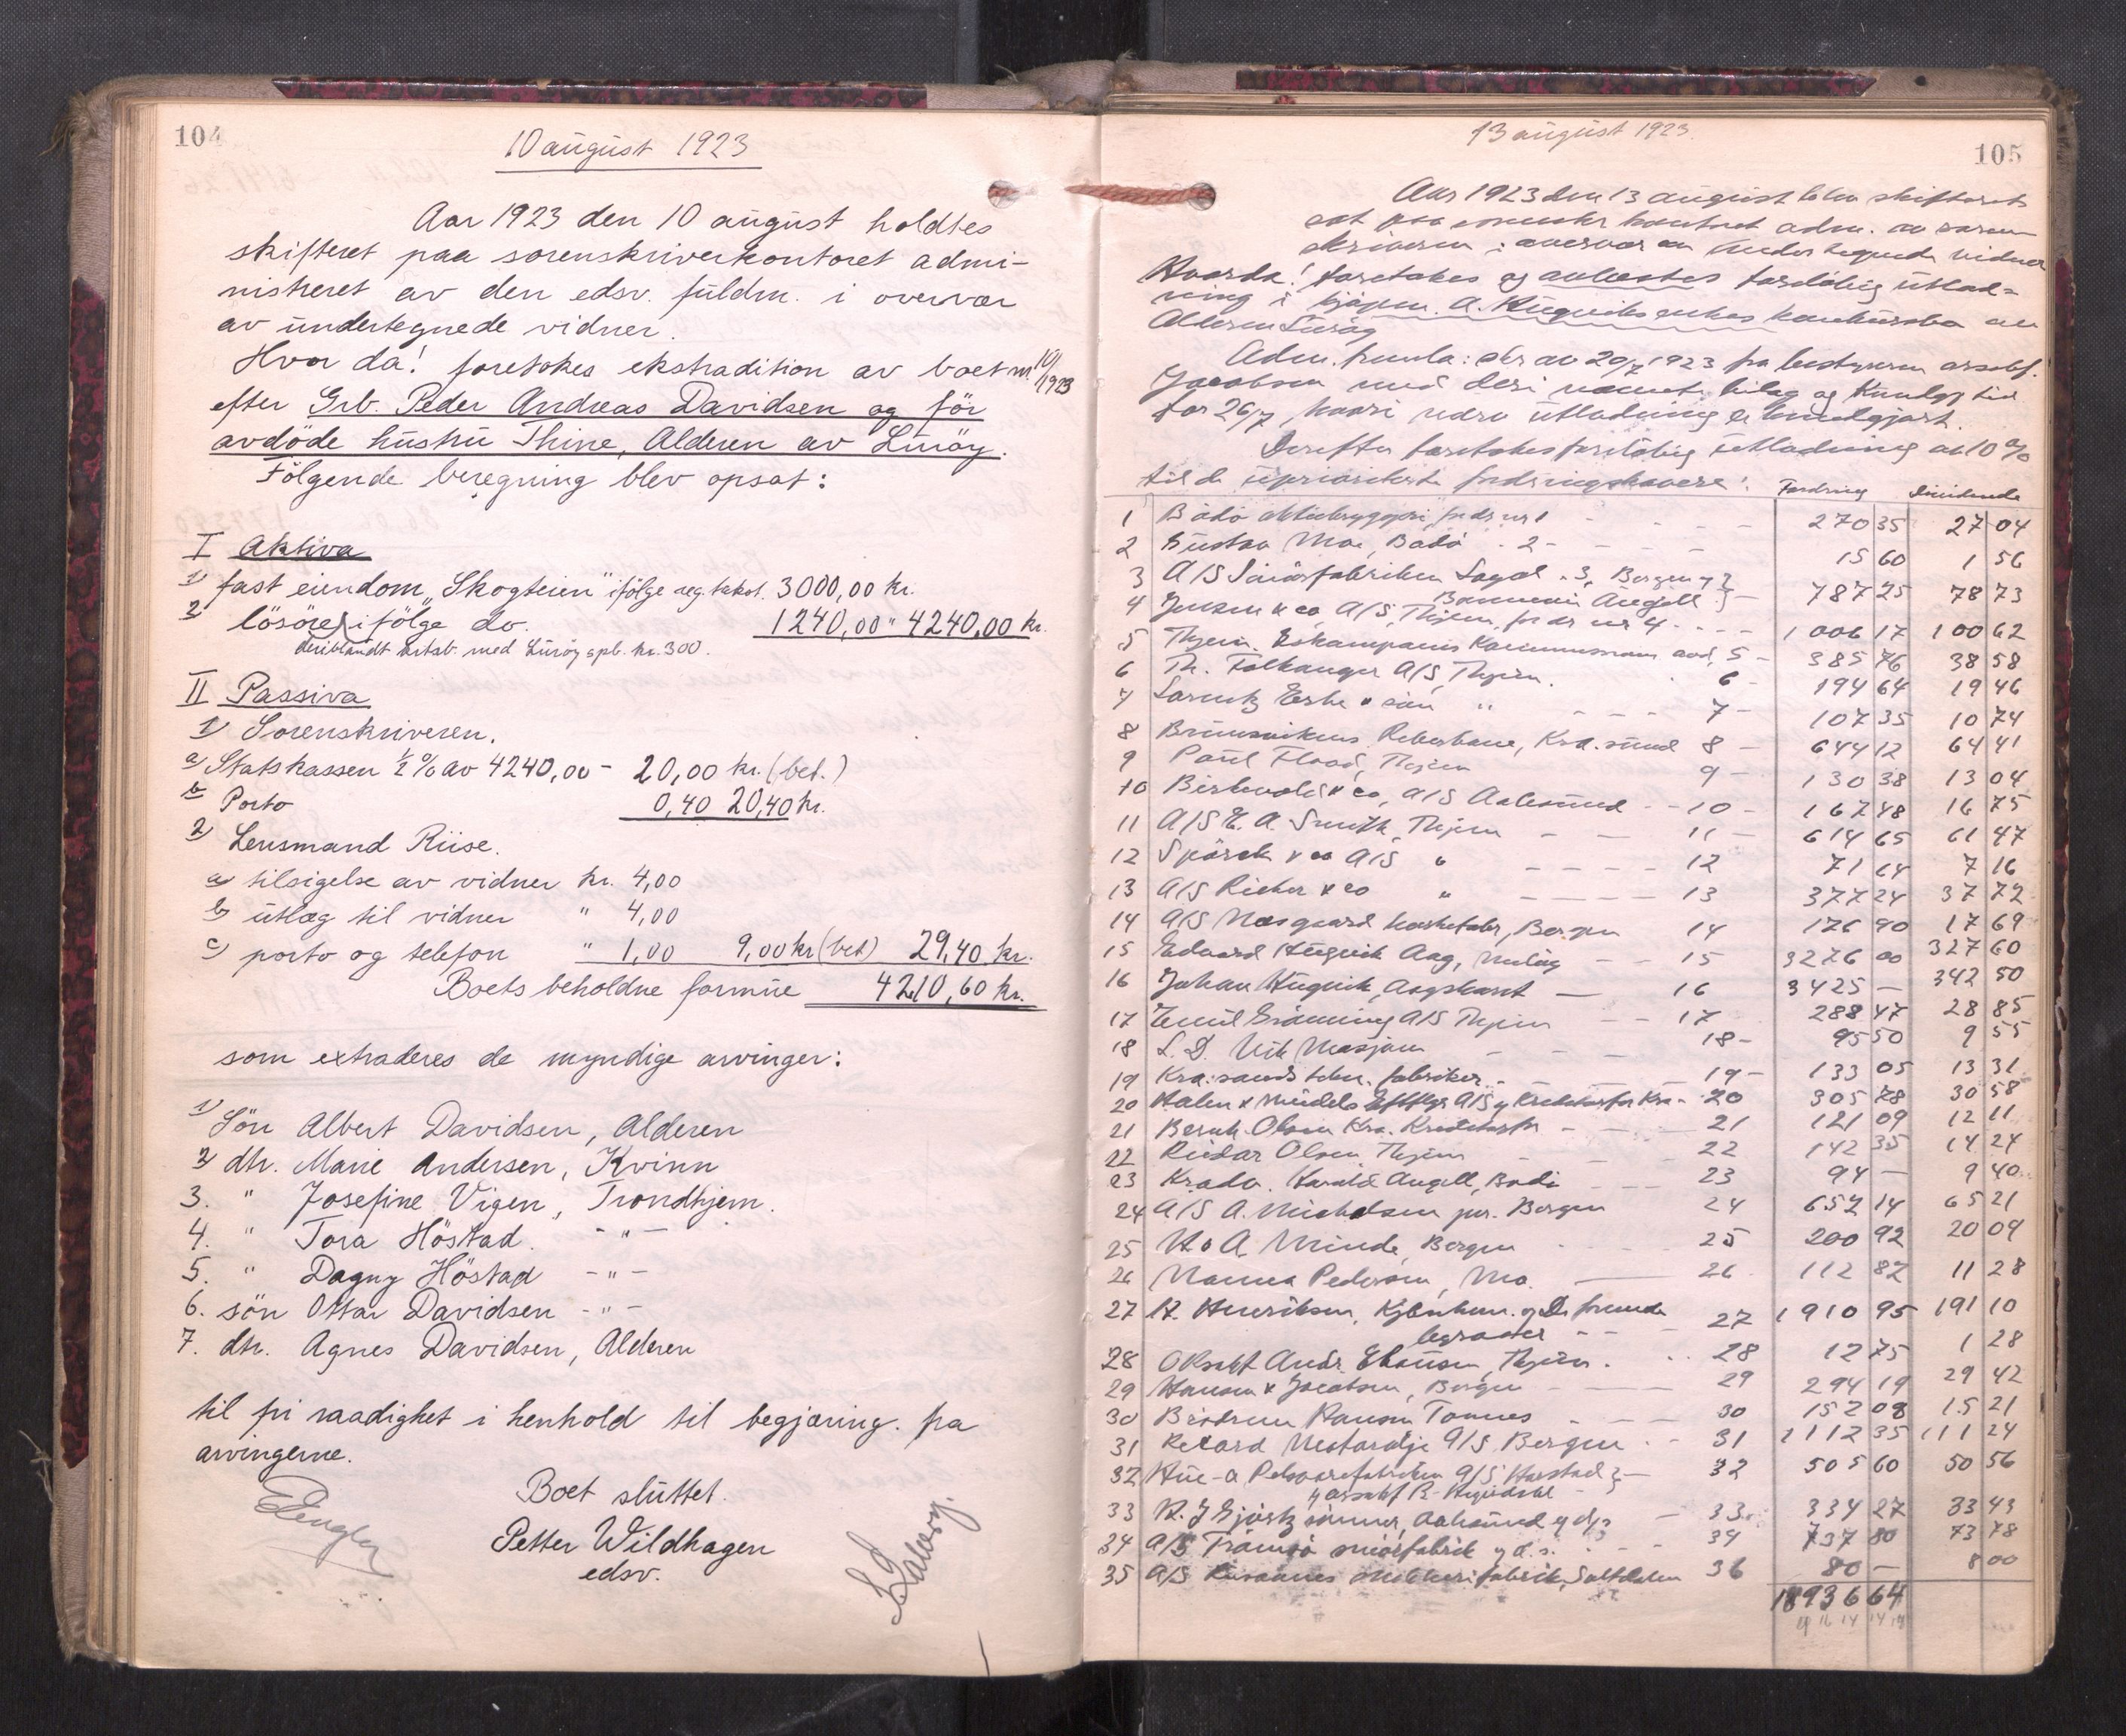 104
10 august 1923
Aar 1923 den 10 august holdtes
skifteret paa sorenskriverkontoret admi-
nistreret av den edsv. fuldm. i overvær
av undertegnede vidner.
Hvor da! foretokes ekstradition av boet nr. 10/1923
efter Grb. Peder Andreas Davidsen og før
avdöde hustru Thine, Alderen av Luröy.
Følgende beregning blev opsat:
I Aktiva
1) fast eiendom „Skogteien" ifölge reg. takst. 3000,00 kr.
2) lösöre ifölge do. 1240,00 " 4240,00 kr.
deriblandt med Luröy spb. kr. 300.
II Passiva
1) Sorenskriveren.
a) Statskassen ½ % av 4240,00 - 20,00 kr. (bet.)
b) Porto 0,40 20,40 kr.
2) Lensmand Riise.
a) tilsigelse av vidner kr. 4,00
b) utlæg til vidner " 4,00
c) porto og telefon " 1,00 9,00 kr (bet) 29,40 kr.
Boets beholdne formue 4210,60 kr.
som extraderes de myndige arvinger:
1) Sön Albert Davidsen, Alderen
2) dtr. Marie Andersen, Kvinn
3. " Josefine Vigen, Trondhjem.
4. " Tora Höstad. - " -
5. " Dagny Höstad - " -
6. sön Ottar Davidsen - " -
7. dtr. Agnes Davidsen, Alderen
til fri raadighet i henhold til begjæring. fra
arvingerne.
Boet sluttet.
Petter Wildhagen
edsv.
105
13 august 1923.
Aar 1923 den 13 august blev skifteret
sat paa kontoret adm. av soren-
skriveren i overvær av undertegnede vidner
Hvorda! foretokes og avlæstes foreløbig utlod-
ning i kjøpm. A. Hugviks enkes konkursbo av
Alderen Luröy
Adm. fremla: skr av 20/7 1923 fra bestyreren orsakf.
Jacobsen med deri nævnte bilag og Kundgj tid
for 26/7, hvori utlodning er kundgjort.
Derefter foretokes foreløbig utlodning av 10 %
til de upriviligerte fordringshavere: Fordring Dividende
1 Bodö aktiebryggeri, fordr nr 1 270 35 27 04
2 Gustav Moe, Bodö - 2 - 15 60 1 56
3 A/S Smörfabriken Lagol - 3, Bergen 787 25 78 73
Angell
4 Jensen & co A/S, Thjem, fordr nr 4 1006 17 100 62
5 Thjem. 5 - 385 76 38 58
6 Th. Falkanger A/S, Thjem. 6 - 194 64 19 46
7 Lorentz Erbe & sön " 7 - 107 35 10 74
8 Brunsvikens Reberbane, Kra.sund 8 - 644 12 64 41
9 Paul Floor, Thjem 9 - 130 38 13 04
10 & co, A/S Aalesund 10 - 167 48 16 75
11 A/S E. A. Smith, Thjem 11 - 614 65 61 47
12 & co A/S " 12 71 64 7 16
13 A/S Rieber & co " 13 377 24 37 72
14 A/S, Bergen 14 176 90 17 69
15 Edvard Hugvik Aag, 15 3276 00 327 60
16 Johan Hugvik, 16 3425 — 342 50
17 Emil A/S Thjem 17 288 47 28 85
18 L. D. Mosjøen 18 - 95 50 9 55
19 Kra.sands fabriker 19 - 133 05 13 31
20 A/S 20 305 78 30 58
21 Bernh. Olsen Kra. 21 121 09 12 11
22 Reidar Olsen Thjem 22 142 35 14 24
23 Harald Angell, Bodö 23 94 — 9 40
24 A/S A. Michelsen jnr. Bergen 24 652 14 65 21
25 H & A. Minde, Bergen 25 200 92 20 09
26 Nanna Pedersen, Mo. 26 112 82 11 28
27 H. Henriksen, Kjöbenhavn. og De forenede 27 1910 95 191 10
28 Orsakf Andr. Thjem. 28 12 75 1 28
29 Hansen & Jacobsen, Bergen 29 294 19 29 42
30 Brödrene Hansen Tonnes 30 152 08 15 21
31 Rekord A/S Bergen 31 1112 35 111 24
32 A/S Harstad 32 505 60 50 56
33 Aalesund 33 334 27 33 43
34 A/S Tromsö smörfabrik 34 737 80 73 78
35 A/S Saltdalen 36 80 — 8 00
18936 64